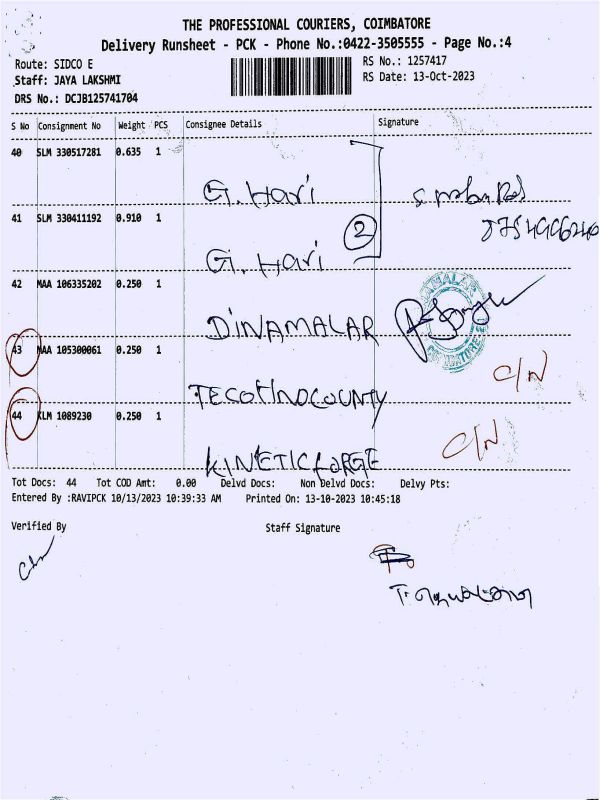 THE PROFESSIONAL COURIERS, COIMBATORE
Delivery Runsheet - PCK - Phone No.:0422-3505555 - Page No.:4
Route: SIDCO E
RS No.: 1257417
Staff: JAYA LAKSHMI
RS Date: 13-Oct-2023
DRS No.: DCJB125741704
S No Consignment No Weight PCS Consignee Details Signature
40 SLM 330517281 0.635 1
G. Hari
41 SLM 330411192 0.910 1
2
G. Hari
42 MAA 106335202 0.250 1
DINAMALAR
43 MAA 105300061 0.250 1
C/N
TECHNOCOUNTY
44 KLM 1089230 0.250 1
C/N
KINETICFORGE
Tot Docs: 44 Tot COD Amt: 0.00 Delvd Docs: Non Delvd Docs: Delvy Pts:
Entered By :RAVIPCK 10/13/2023 10:39:33 AM Printed On: 13-10-2023 10:45:18
Verified By Staff Signature